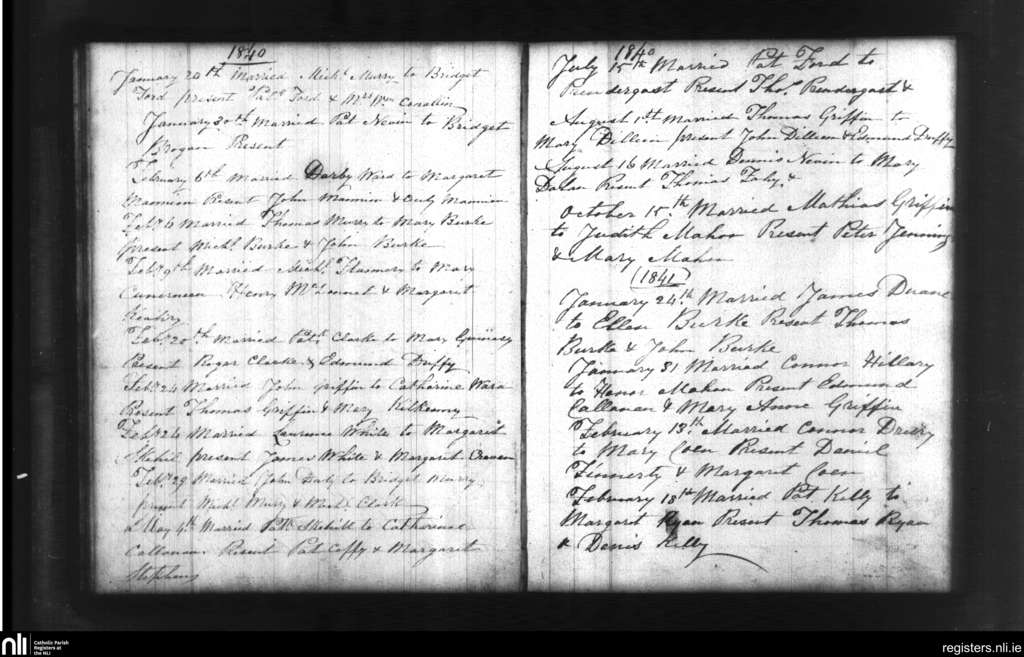 1840
January 20th Married Michl Murry to Bridget
Ford present Patk Ford & Mrs Wm
January 30th Married Pat Nevin to Bridget
Brogan Present
February 6th Married Darby Ward to Margaret
Mannion Present John Mannion & Mannion
Feby 6 Married Thomas Murry to Mary Burke
present Michl Burke & John Burke
Feby 9th Married Michl Flannery to Mary
Henry McDonnel & Margaret
Feby 20th Married Patk Clarke to Mary
Present Roger Clarke & Edmund Duffy
Feby 24 Married John Griffin to Catharine Ward
Present Thomas Griffin & Mary Kilkenny
Feby 26 Married Lawrence White to Margarit
Skehil present James White & Margarit Craven
Feby 29 Married John Daly to Bridget Murry
present Michl Murry & Clark
May 4th Married Patk Skehill to Catherine
Callanan Present Pat Coffy & Margaret
Stephens
1840
July 15th Married Pat Ford to
Prendergast Present Thos Prendergast &
August 1st Married Thomas Griffin to
Mary Dilleen present John Dilleen & Edmund Duffy
August 16 Married Dennis Nevin to Mary
Present Thomas Fahy &
October 15th Married Mathias Griffin
to Judith Mahon Present Peter Jennings
& Mary Mahon
(1841)
January 24th Married James Duane
to Ellen Burke Present Thomas
Burke & John Burke
January 31 Married Connor Hillary
to Honor Mahon Present Edmund
Callanan & Mary Anne Griffin
February 18th Married Connor
to Mary Coen Present Daniel
Finnerty & Margaret Coen
February 18th Married Pat Kelly to
Margaret Ryan Present Thomas Ryan
& Denis Kelly
nli
Catholic Parish
Registers at
the NLI
registers.nli.ie